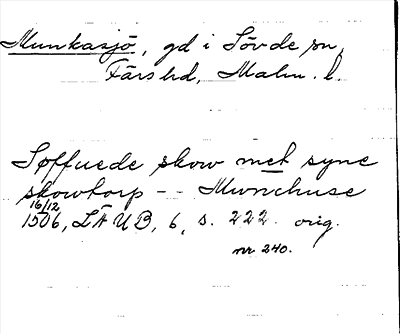 Munkasjö, gd i Sövde sn,
Färs hd, Malm. l.
Søffuede skow met syne
skowtorp -- Mwnchuse
16/12
1506, LÄUB, 6, s. 222. orig.
nr 240.